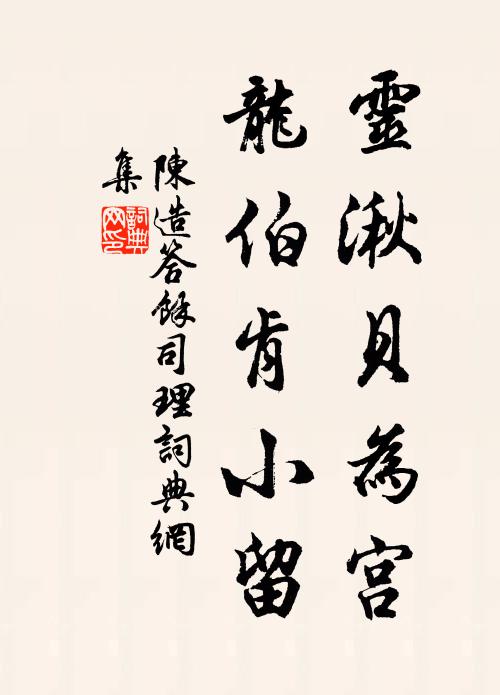 靈湫貝為宮
龍伯肯小留
陳造答餘司理詞典網
集
詞典网印